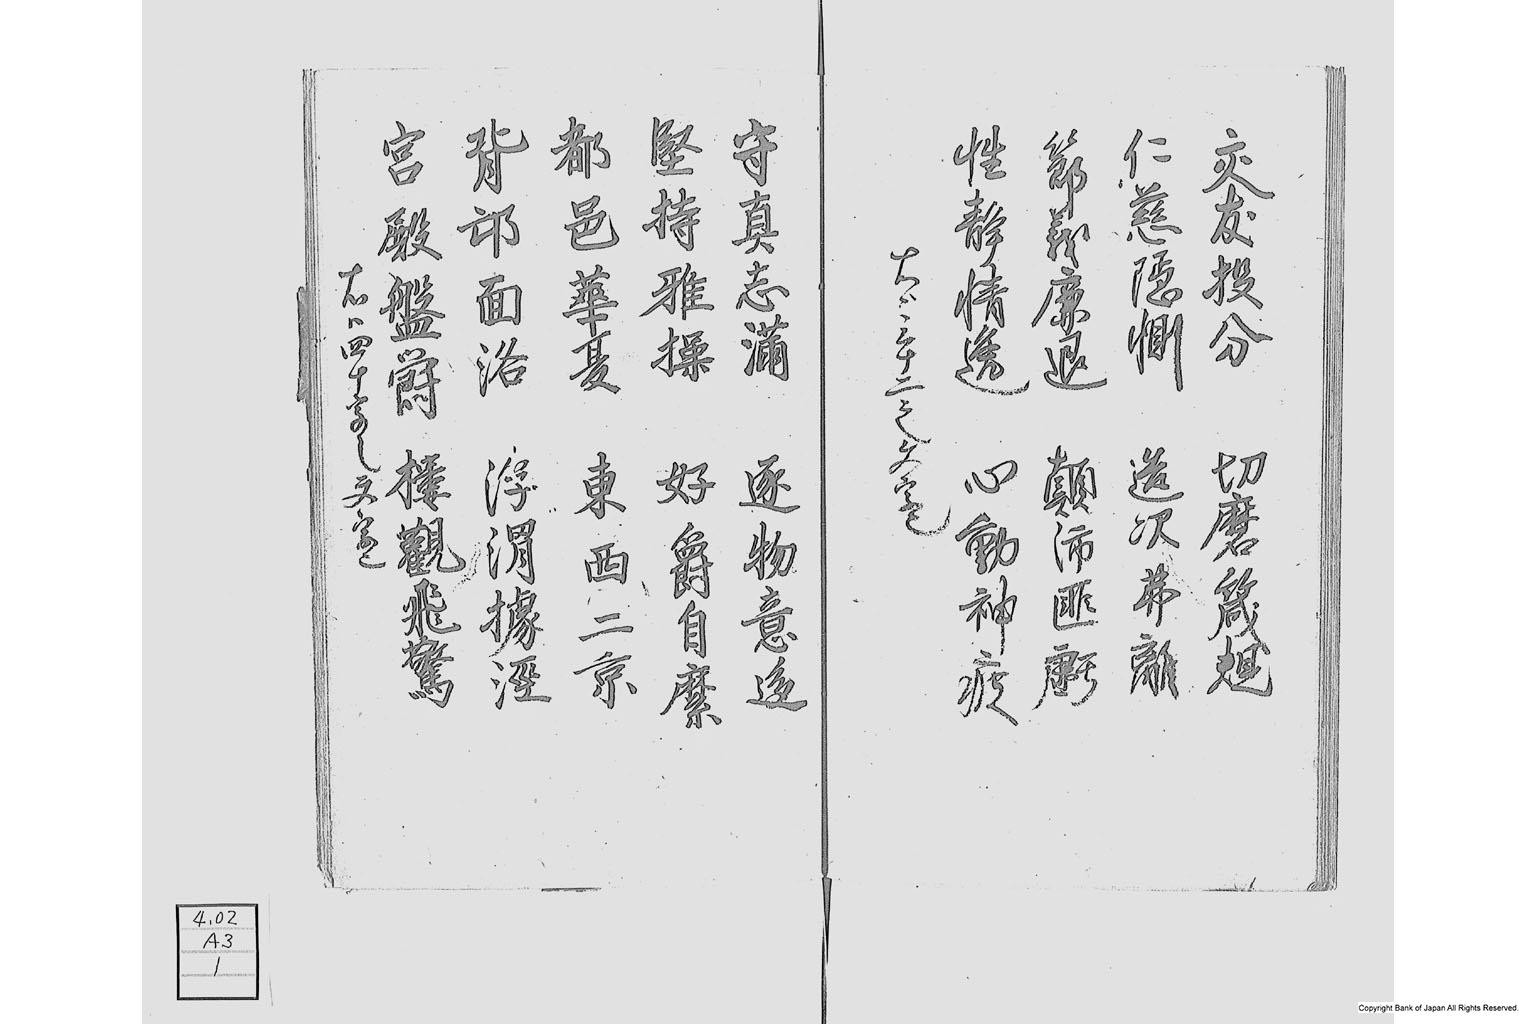 交友投分　切磨箴規
仁慈隠惻　造次弗離
節義廉退　顛沛匪虧
性静情逸　心動神疲
三十二之文
守真志満　逐物意迻
堅持雅操　好爵自縻
都邑華夏　東西二京
背邙面洛　浮渭據涇
宮殿盤欝　樓觀飛驚
右ハ四十字之文
4.02
A3
1
Copyright Bank of Japan All Rights Reserved.